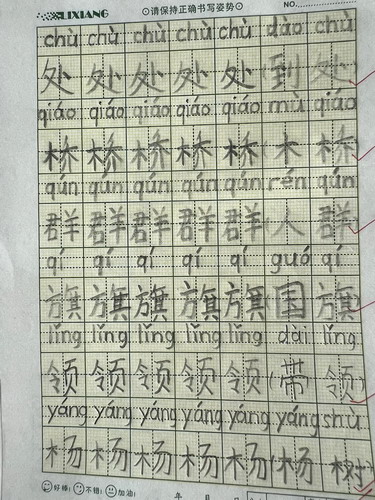 LIXIANG ⊙请保持正确书写姿势⊙ NO.
chù chù chù chù chù dào chù
处 处 处 处 处 (到 处
qiáo qiáo qiáo qiáo qiáo mù qiáo
桥 桥 桥 桥 桥 (木 桥
qún qún qún qún qún rén qún
群 群 群 群 群 (人 群
qí qí qí qí qí guó qí
旗 旗 旗 旗 旗 (国 旗
lǐng lǐng lǐng lǐng lǐng dài lǐng
领 领 领 领 领 (带 领
yáng yáng yáng yáng yáng yáng shù
杨 杨 杨 杨 杨 (杨 树
好棒: 不错: 加油: 年 月 日